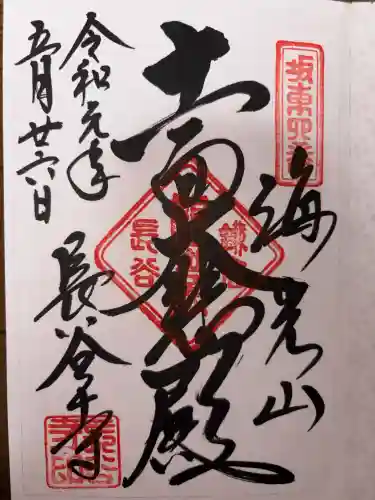 坂東四番
海光山
十一面大悲殿
長谷
鎌倉
令和元年
五月廿六日
長谷寺